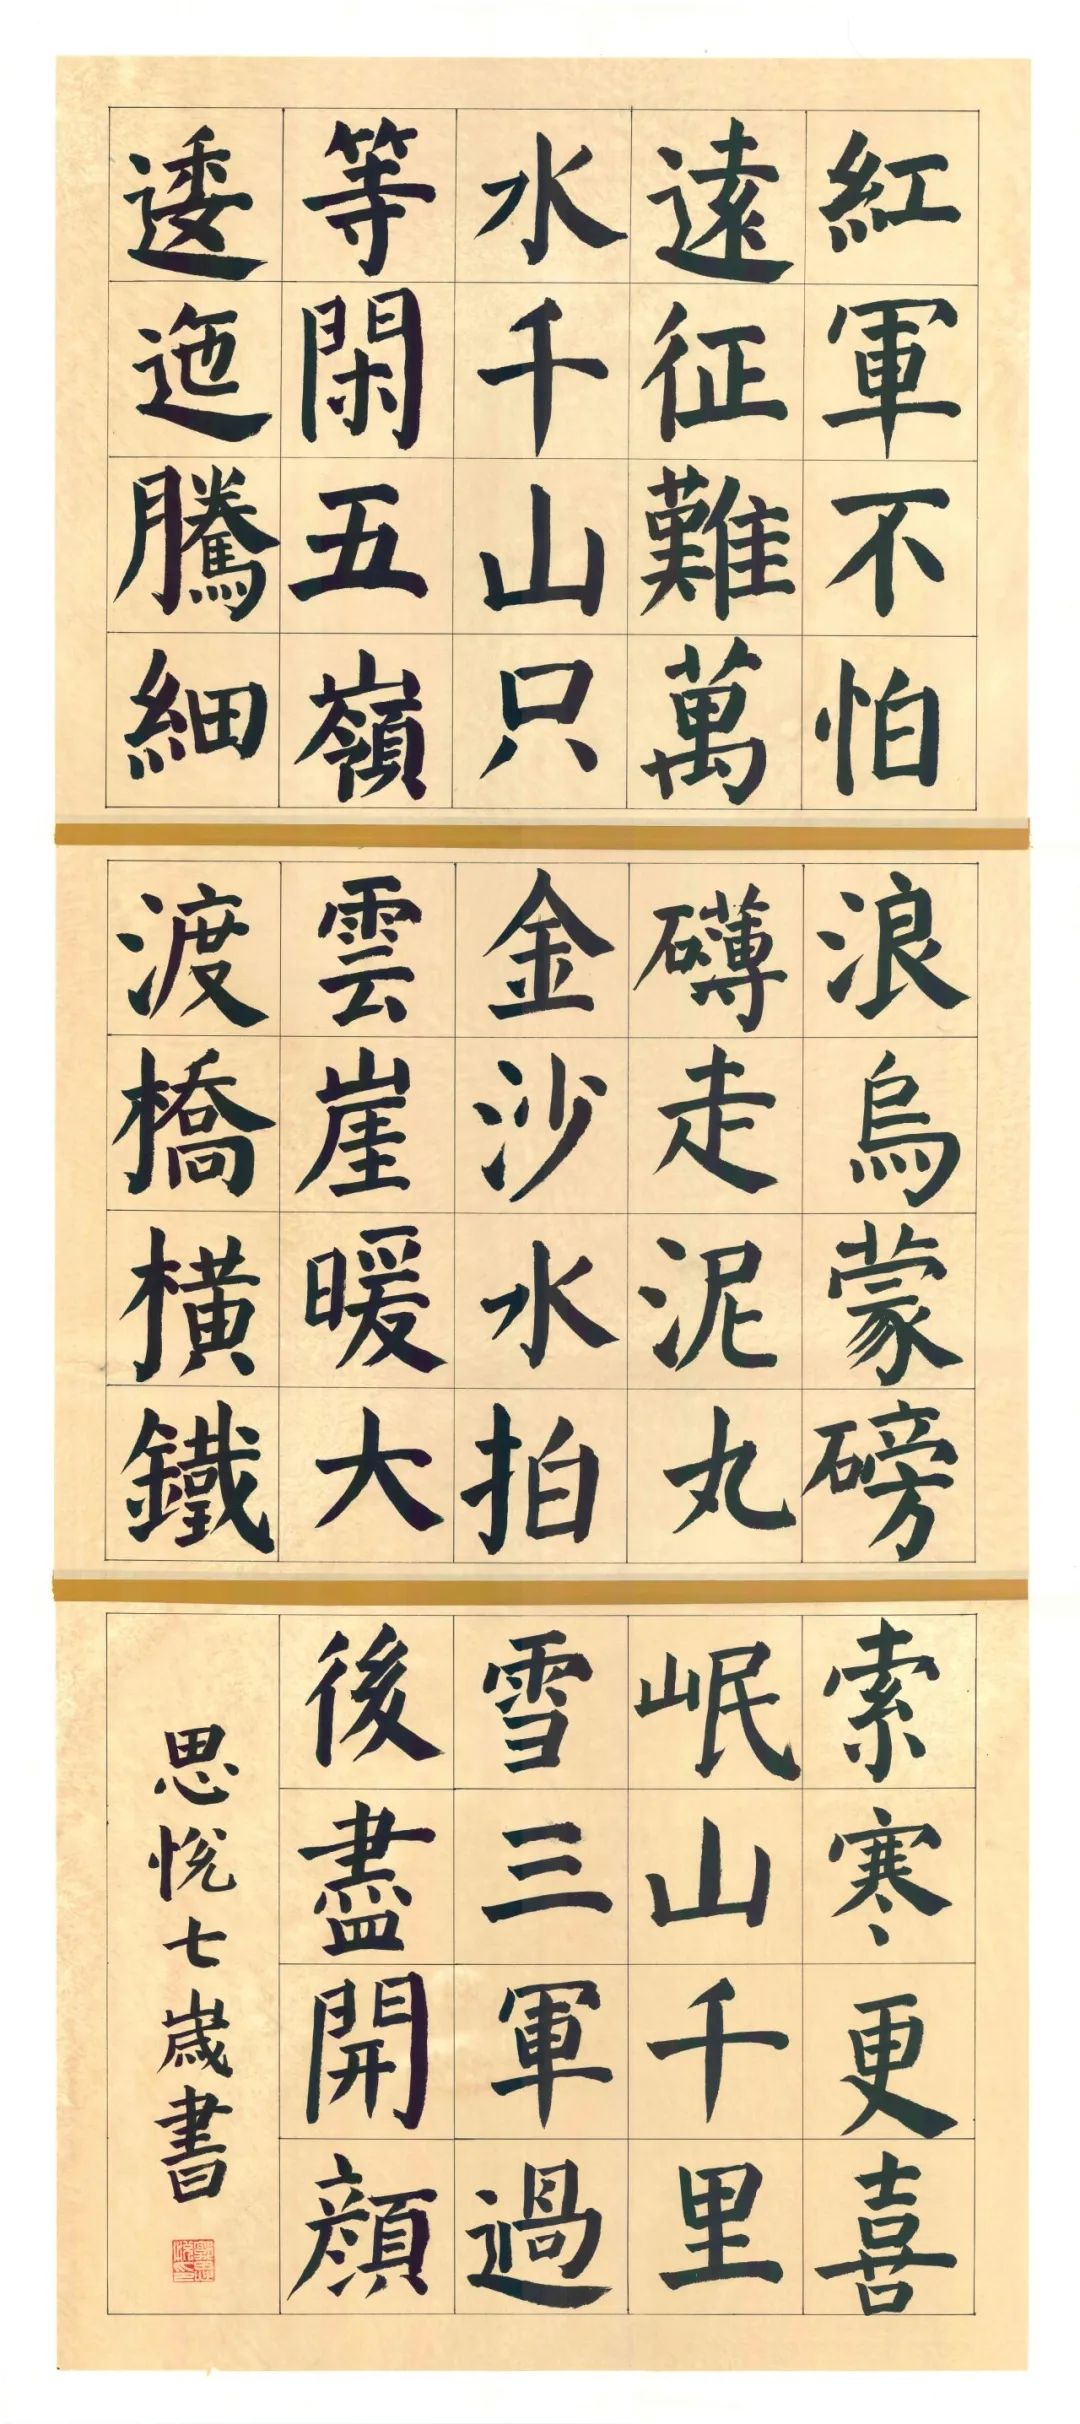 紅軍不怕
遠征難萬
水千山只
等閑五嶺
逶迤騰細
浪烏蒙磅
礴走泥丸
金沙水拍
雲崖暖大
渡橋橫鐵
索寒更喜
岷山千里
雪三軍過
後盡開顏
思悅七歲書